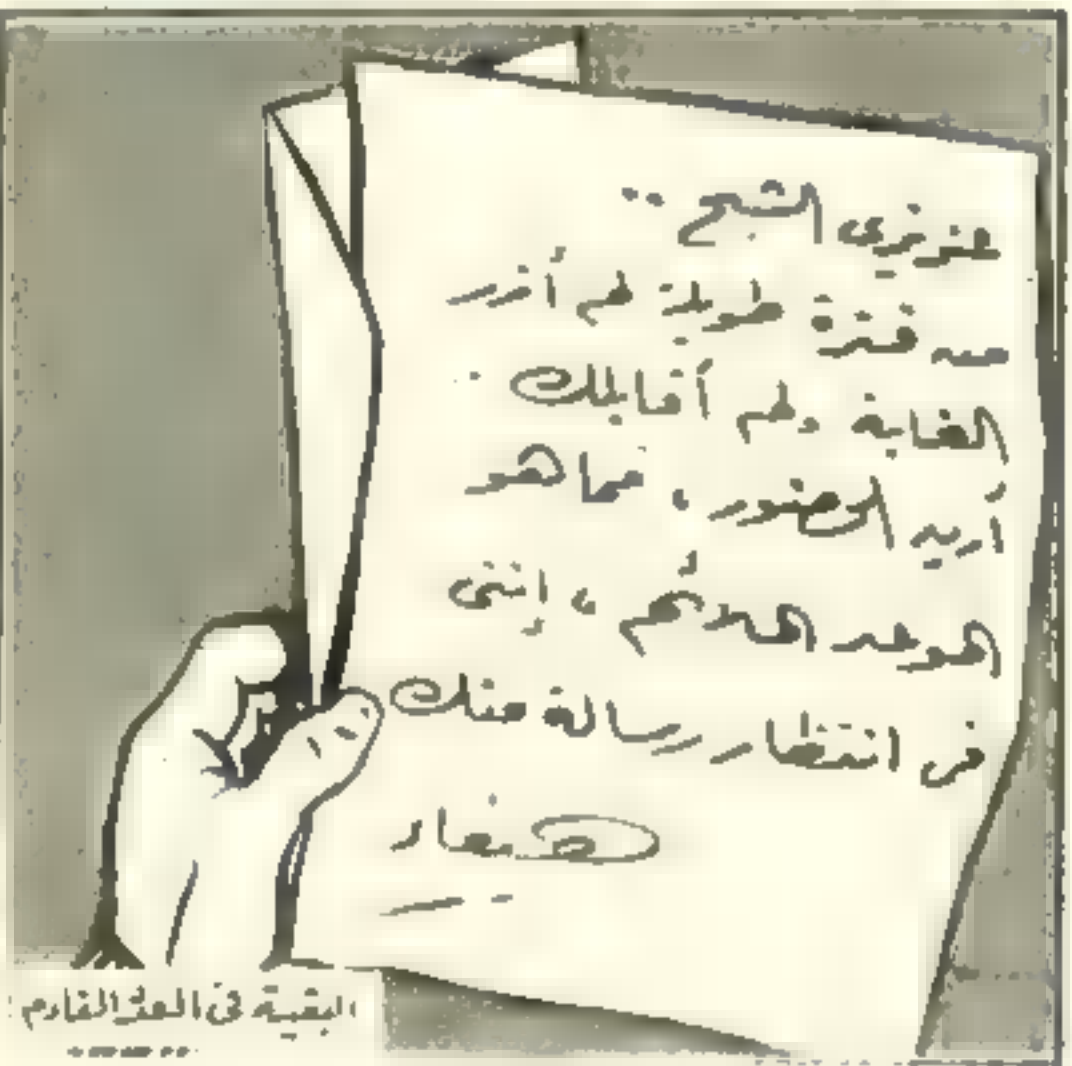 عزيزى الشبح ..
من فترة طويلة لم أزر
الغابة ولم أقابلك .
أريد الحضور ، فما هو
الموعد الملائم ، إننى
فى انتظار رسالة منك
البقية فى العدد القادم